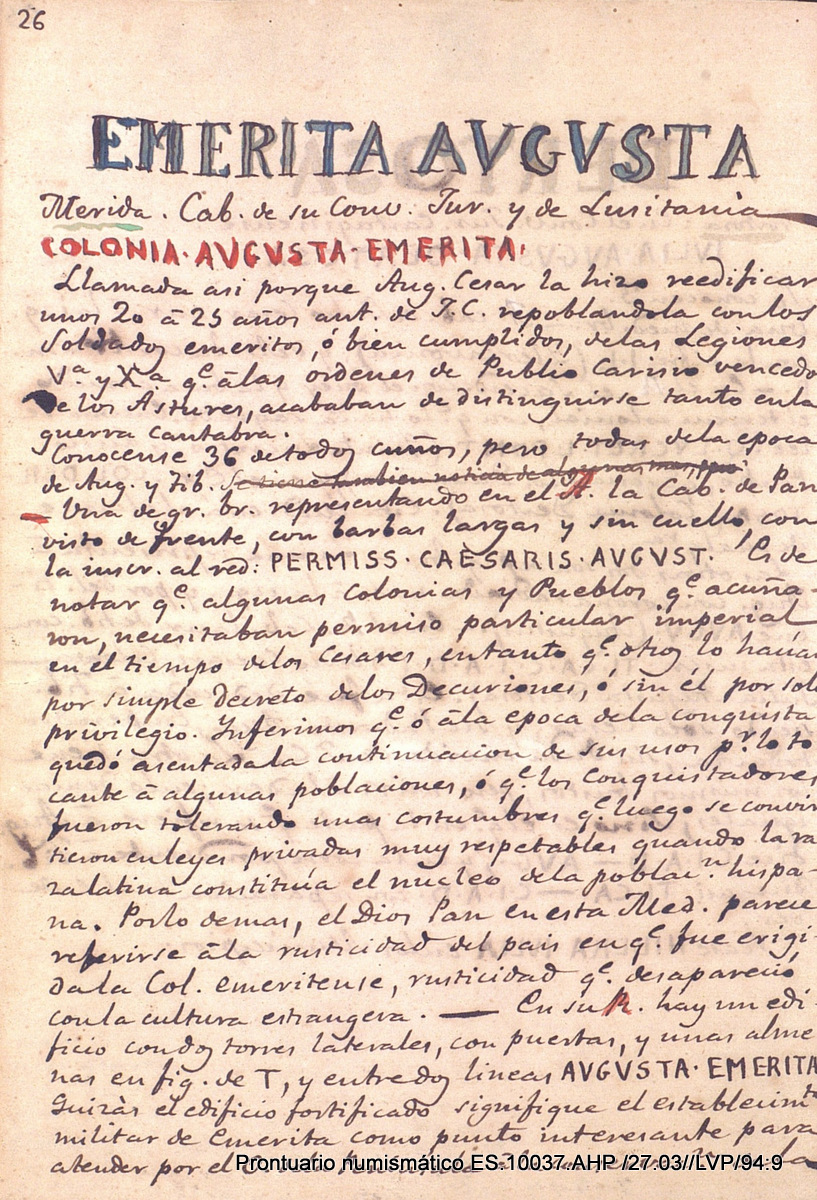 26
EMERITA AVGVSTA
Merida. Cab. de su Conv. Jur. y de Lusitania
COLONIA·AVGVSTA·EMERITA·
Llamada asi porque Aug. Cesar la hizo reedificar
unos 20 ā 25 años ant. de J.C. repoblandola con los
Soldados emeritos, ó bien cumplidos, delas Legiones
Vª. y Xª q.e ālas ordenes de Publio Carisio vencedo
de los Astures, acababan de distinguirse tanto enla
guerra Cantabra.
Conocense 36 detodos cuños, pero todas dela epoca
de Aug. y Tib. Se tiene tambien noticia de algunas mas, pero
Una de gr. br. representando en el A. la Cab. de Pan
visto de frente, con barbas largas y sin cuello, con
la inscr. al red: PERMISS·CAESARIS·AVGVST. Es de
notar q.e algunas Colonias y Pueblos q.e acuña-
ron, necesitaban permiso particular imperial
en el tiempo delos Cesares, entanto q.e otros lo hacian
por simple decreto delos Decuriones, ó sin él por solo
privilegio. Inferimos q.e ó āla epoca dela conquista
quedó asentada la continuacion de sus usos p.r lo to
cante ā algunas poblaciones, ó q.e los Conquistadores
fueron tolerando unas costumbres q.e luego se convir
tieron en leyes privadas muy respetables quando la ra
za latina constituia el nucleo dela poblac.n hispa-
na. Porlo demas, el Dios Pan en esta Med. parece
referirse āla rusticidad del pais en q.e fue erigi-
da la Col. emeritense, rusticidad q.e desapareció
con la cultura estrangera. — En su R. hay un edi-
ficio con dos torres laterales, con puertas, y unas alme
nas en fig. de T, y entre dos lineas AVGVSTA·EMERITA
Quizàs el edificio fortificado signifique el establecim.to
militar de Emerita como punto interesante para
atender por el
Prontuario numismático ES.10037.AHP /27.03//LVP/94:9